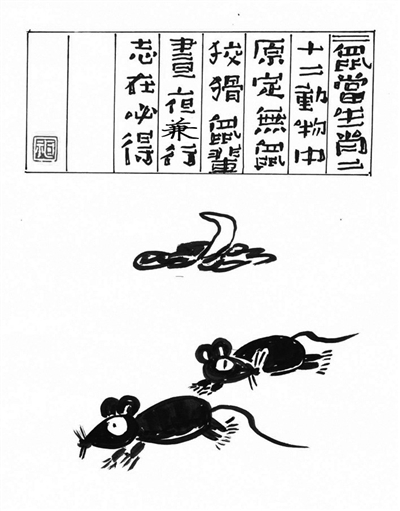 二鼠當生肖二
十二動物中
原定無鼠
狡猾鼠輩
晝夜兼行
志在必得